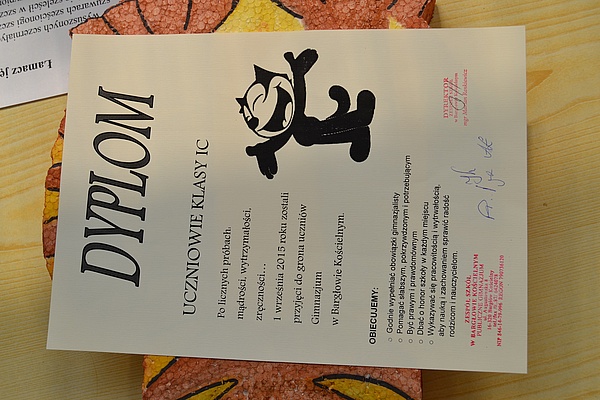 DYPLOM
UCZNIOWIE KLASY IC
Po licznych próbach,
mądrości, wytrzymałości,
zręczności...
1 września 2015 roku zostali
przyjęci do grona uczniów
Gimnazjum
w Bargłowie Kościelnym.
OBIECUJEMY:
○ Godnie wypełniać obowiązki gimnazjalisty
○ Pomagać słabszym, pokrzywdzonym i potrzebującym
○ Być prawym i prawdomównym
○ Dbać o honor szkoły w każdym miejscu
○ Wykazywać się pracowitością i wytrwałością,
aby nauką i zachowaniem sprawić radość
rodzicom i nauczycielom.
ZESPÓŁ SZKÓŁ
W BARGŁOWIE KOŚCIELNYM
PUBLICZNE GIMNAZJUM
DYREKTOR
Łamacz ję